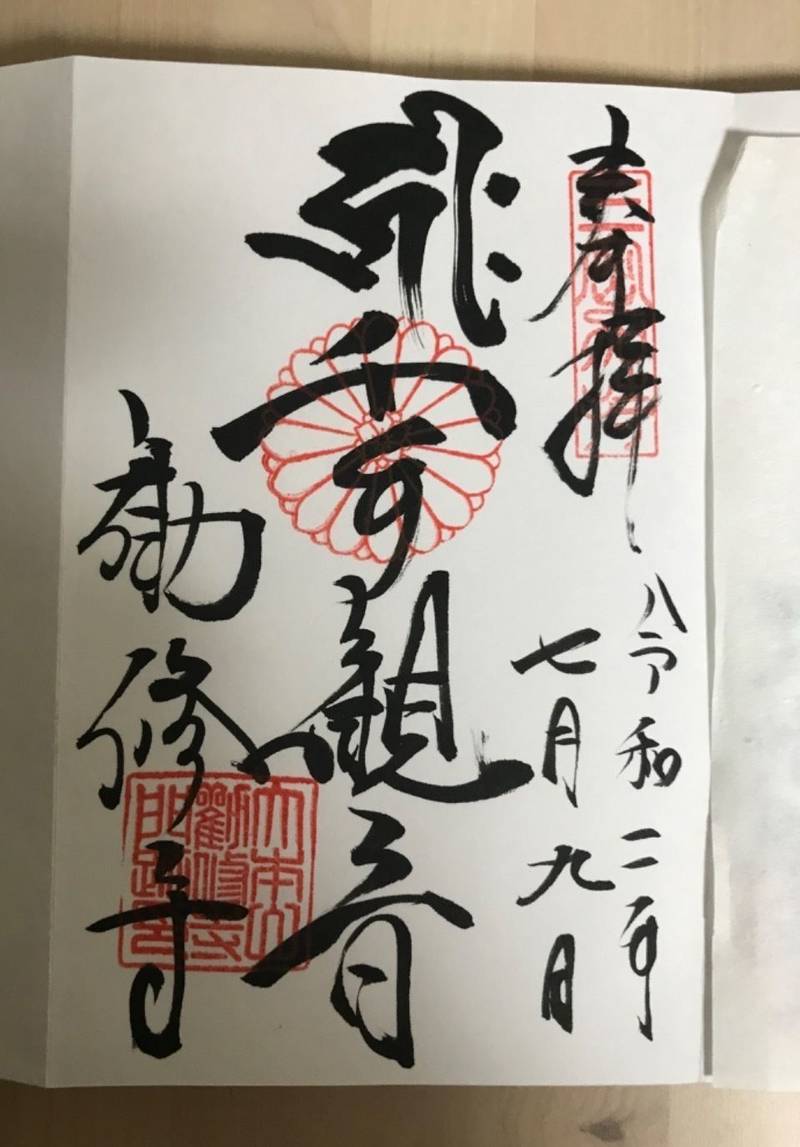 奉拝
令和二年
七月九日
千手観音
勧修寺